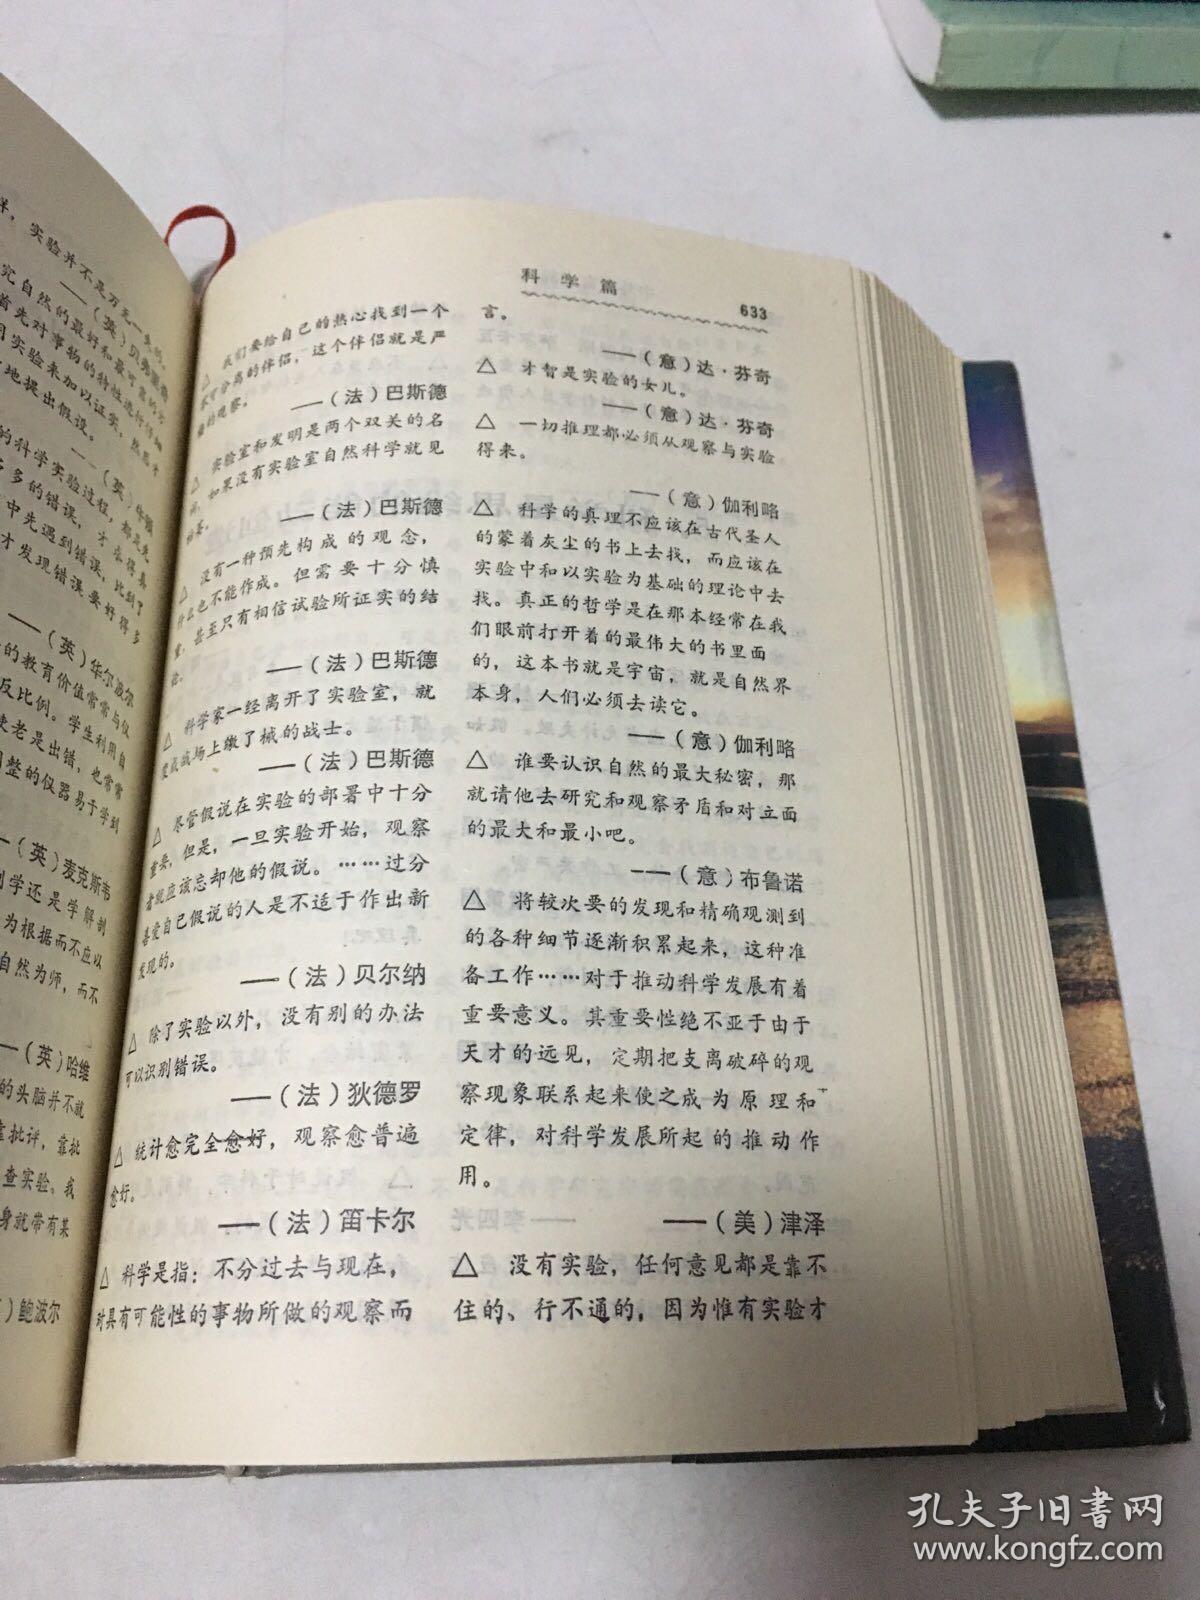 详，实验并不是万无一失的。
——（英）贝弗里奇
究自然的最好和最可靠的方
首先对事物的特性进行仔细
用实验来加以证实，然后才
地提出假设。
——（英）牛顿
的科学实验过程，都是先
多的错误，才求得真
中先遇到错误，比到了
才发现错误要好得多
——（英）华尔波尔
的教育价值常常与仪
反比例。学生利用自
使老是出错，也常常
调整的仪器易于学到
—（英）麦克斯韦
剖学还是学解剖
为根据而不应以
自然为师，而不
——（英）哈维
的头脑并不就
靠批评，靠批
查实验。我
身就带有某
）鲍波尔
科学篇
633
△ 我们要给自己的热心找到一个
不可分离的伴侣，这个伴侣就是严
格的观察。
——（法）巴斯德
△ 实验室和发明是两个双关的名
词，如果没有实验室自然科学就见
——（法）巴斯德
△ 没有一种预先构成的观念，
什么也不能作成。但需要十分慎
重，甚至只有相信试验所证实的结
论。
——（法）巴斯德
△ 科学家一经离开了实验室，就
变成战场上缴了械的战士。
——（法）巴斯德
△ 尽管假说在实验的部署中十分
重要，但是，一旦实验开始，观察
者就应该忘却他的假说。……过分
喜爱自己假说的人是不适于作出新
发现的。
——（法）贝尔纳
△ 除了实验以外，没有别的办法
可以识别错误。
——（法）狄德罗
△ 统计愈完全愈好，观察愈普遍
愈好。
——（法）笛卡尔
△ 科学是指：不分过去与现在，
对具有可能性的事物所做的观察而
言。
——（意）达·芬奇
△ 才智是实验的女儿。
——（意）达·芬奇
△ 一切推理都必须从观察与实验
得来。
——（意）伽利略
△ 科学的真理不应该在古代圣人
的蒙着灰尘的书上去找，而应该在
实验中和以实验为基础的理论中去
找。真正的哲学是在那本经常在我
们眼前打开着的最伟大的书里面
的，这本书就是宇宙，就是自然界
本身，人们必须去读它。
——（意）伽利略
△ 谁要认识自然的最大秘密，那
就请他去研究和观察矛盾和对立面
的最大和最小吧。
——（意）布鲁诺
△ 将较次要的发现和精确观测到
的各种细节逐渐积累起来，这种准
备工作……对于推动科学发展有着
重要意义。其重要性绝不亚于由于
天才的远见，定期把支离破碎的观
察现象联系起来使之成为原理和
定律，对科学发展所起的推动作
用。
——（美）津泽
△ 没有实验，任何意见都是靠不
住的、行不通的，因为惟有实验才
孔夫子旧书网
www.kongfz.com